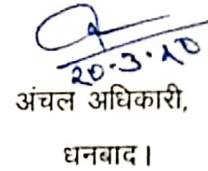 20.3.20
अंचल अधिकारी,
धनबाद।